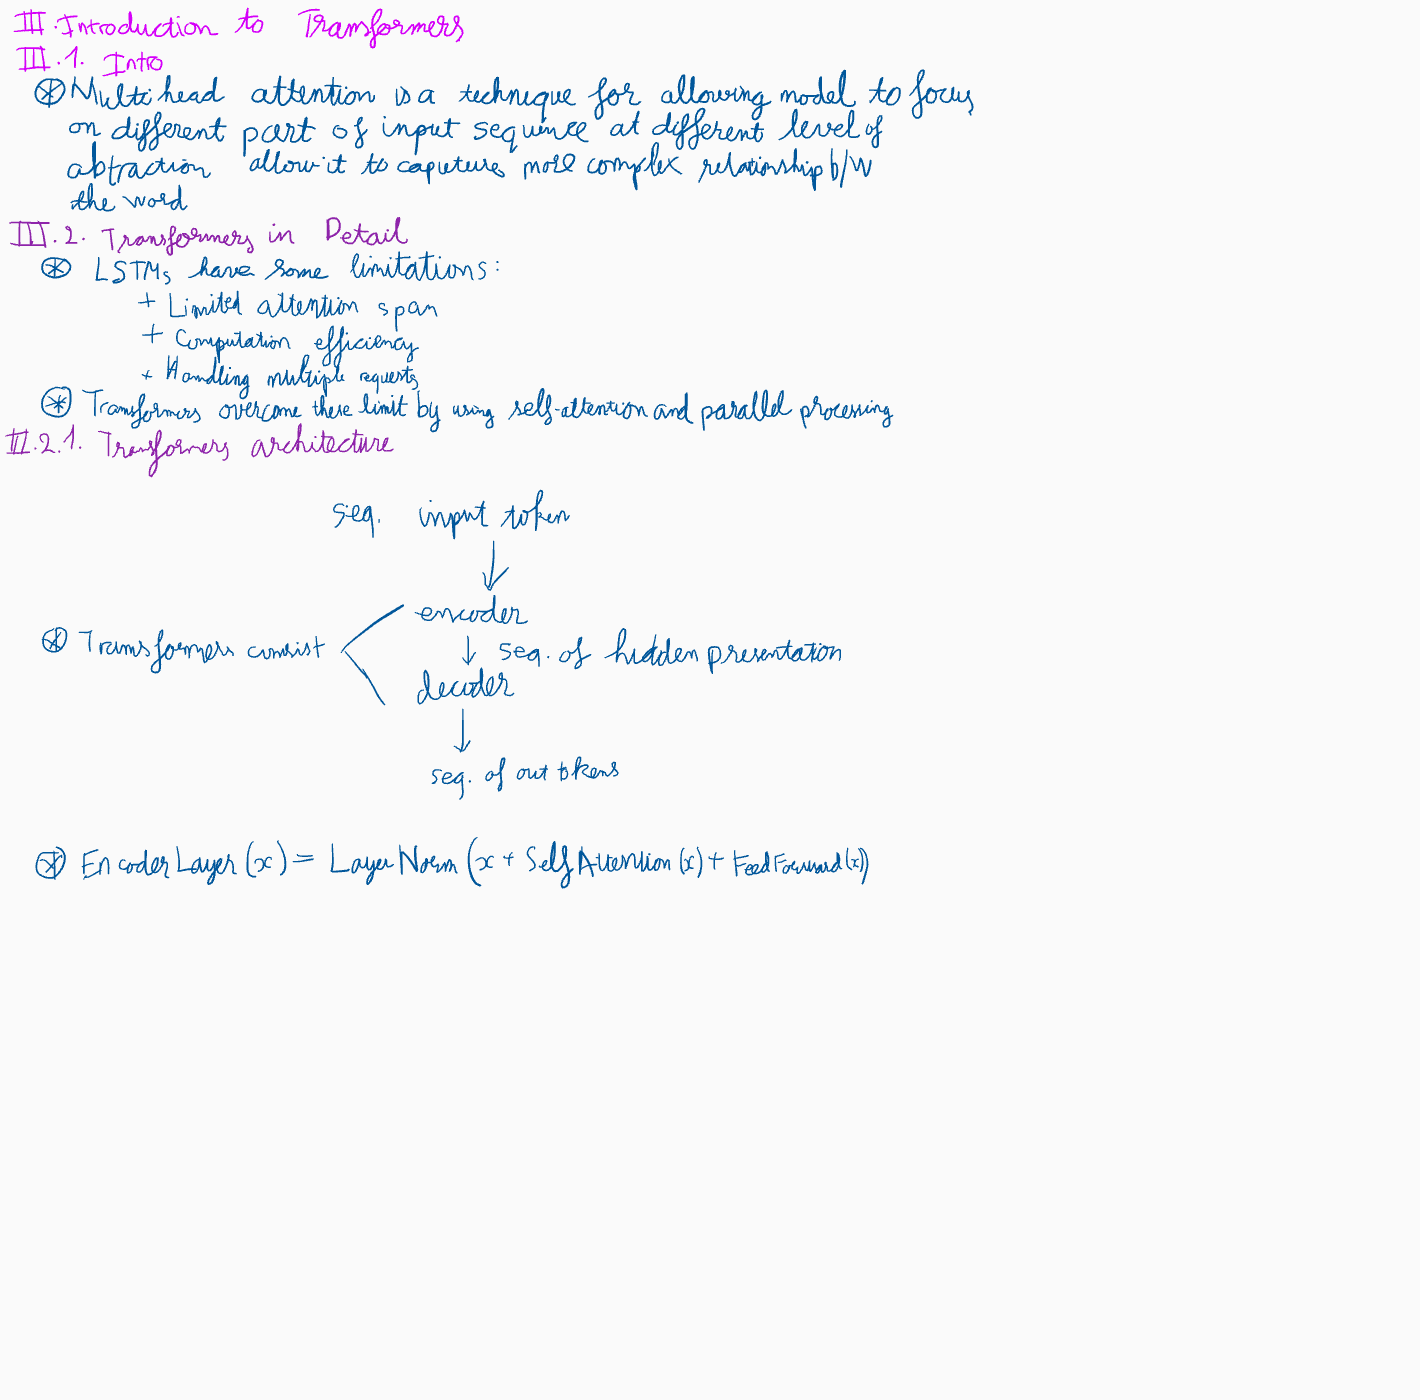 III. Introduction to Transformers
III.1. Intro
⊛ Multi head attention is a technique for allowing model to focus
on different part of input sequence at different level of
abtraction allow it to caputure more complex relationship b/w
the word
III.2. Transformers in Detail
⊛ LSTMs have some limitations:
+ Limited attention span
+ Computation efficiency
+ Handling multiple requests
⊛ Transformers overcome these limit by using self-attention and parallel processing
II.2.1. Transformers architecture
seq. input token
encoder
⊛ Transformers consist
seq. of hidden presentation
decoder
seq. of out tokens
⊛ EncoderLayer(x) = LayerNorm(x + SelfAttention(x) + FeedForward(x))